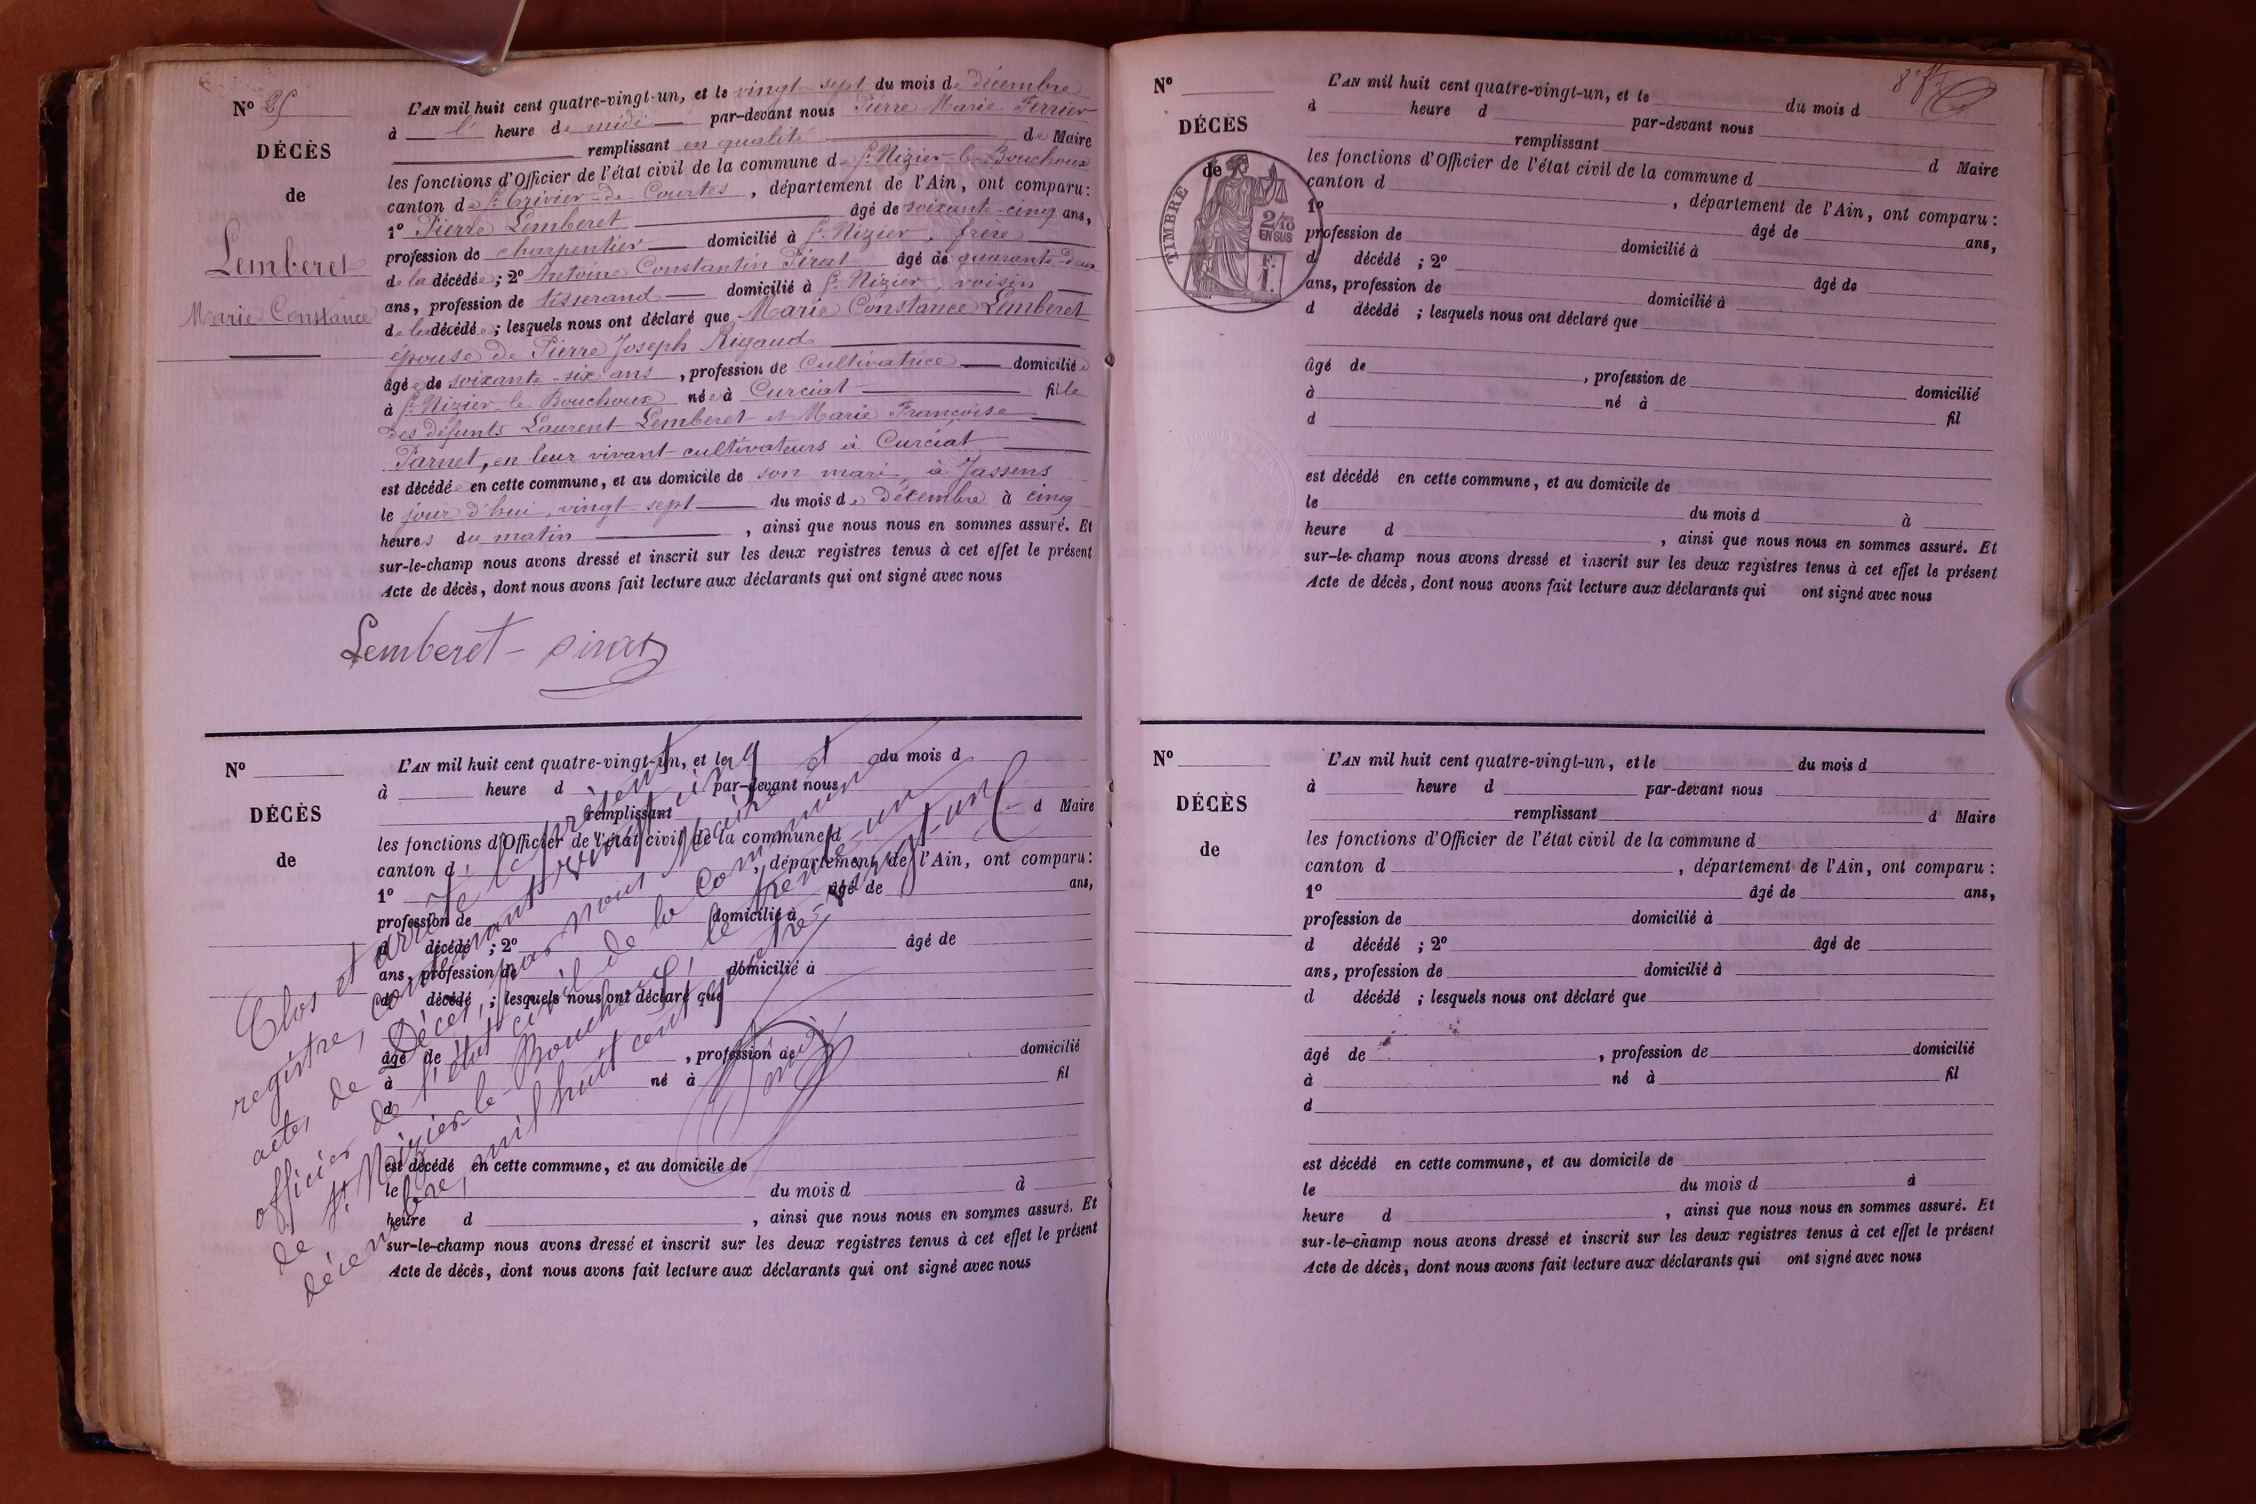 N° 25
DÉCÈS
de
Lemberet
Marie Constance
L'AN mil huit cent quatre-vingt-un, et le vingt sept du mois de décembre
à l' heure de midi par-devant nous Pierre Marie Ferrier
remplissant en qualité de Maire
les fonctions d'Officier de l'état civil de la commune de St. Nizier-le-Bouchoux
canton de St. Trivier-de-Courtes, département de l'Ain, ont comparu:
1° Pierre Lemberet âgé de soixante-cinq ans,
profession de charpentier domicilié à St. Nizier, frère
de la décédée; 2° Antoine Constantin Pirat âgé de quarante-deux
ans, profession de tisserand domicilié à St. Nizier, voisin
de la décédée; lesquels nous ont déclaré que Marie Constance Lemberet
épouse de Pierre Joseph Rigaud
âgée de soixante-six ans, profession de Cultivatrice domiciliée
à St. Nizier-le-Bouchoux née à Curciat fille
des défunts Laurent Lemberet et Marie Françoise
Parnet, en leur vivant cultivateurs à Curciat
est décédée en cette commune, et au domicile de son mari, à Jassens
le jour d'hui, vingt-sept du mois de décembre à cinq
heures du matin, ainsi que nous nous en sommes assuré. Et
sur-le-champ nous avons dressé et inscrit sur les deux registres tenus à cet effet le présent
Acte de décès, dont nous avons fait lecture aux déclarants qui ont signé avec nous
Lemberet - Pirat
N°
DÉCÈS
de
L'AN mil huit cent quatre-vingt-un, et le du mois d
à heure d par-devant nous
remplissant d Maire
les fonctions d'Officier de l'état civil de la commune d
canton d, département de l'Ain, ont comparu:
1° âgé de ans,
profession de domicilié à
d décédé ; 2° âgé de
ans, profession de domicilié à
d décédé ; lesquels nous ont déclaré que
âgé de, profession de domicilié
à né à fil
d
est décédé en cette commune, et au domicile de
le du mois d à
heure d, ainsi que nous nous en sommes assuré. Et
sur-le-champ nous avons dressé et inscrit sur les deux registres tenus à cet effet le présent
Acte de décès, dont nous avons fait lecture aux déclarants qui ont signé avec nous
Clos et arrêté le présent
registre, contenant vingt cinq
actes de Décès, par nous Maire et
officier de l'état civil de la commune
de St. Nizier-le-Bouchoux, le trente-un
décembre, mil huit cent quatre-vingt-un
8e ft
N°
DÉCÈS
de
TIMBRE
2/10
EN SUS
F.
1.
L'AN mil huit cent quatre-vingt-un, et le du mois d
à heure d par-devant nous
remplissant d Maire
les fonctions d'Officier de l'état civil de la commune d
canton d, département de l'Ain, ont comparu:
1° âgé de ans,
profession de domicilié à
d décédé ; 2° âgé de
ans, profession de domicilié à
d décédé ; lesquels nous ont déclaré que
âgé de, profession de domicilié
à né à fil
d
est décédé en cette commune, et au domicile de
le du mois d à
heure d, ainsi que nous nous en sommes assuré. Et
sur-le-champ nous avons dressé et inscrit sur les deux registres tenus à cet effet le présent
Acte de décès, dont nous avons fait lecture aux déclarants qui ont signé avec nous
N°
DÉCÈS
de
L'AN mil huit cent quatre-vingt-un, et le du mois d
à heure d par-devant nous
remplissant d Maire
les fonctions d'Officier de l'état civil de la commune d
canton d, département de l'Ain, ont comparu:
1° âgé de ans,
profession de domicilié à
d décédé ; 2° âgé de
ans, profession de domicilié à
d décédé ; lesquels nous ont déclaré que
âgé de, profession de domicilié
à né à fil
d
est décédé en cette commune, et au domicile de
le du mois d à
heure d, ainsi que nous nous en sommes assuré. Et
sur-le-champ nous avons dressé et inscrit sur les deux registres tenus à cet effet le présent
Acte de décès, dont nous avons fait lecture aux déclarants qui ont signé avec nous